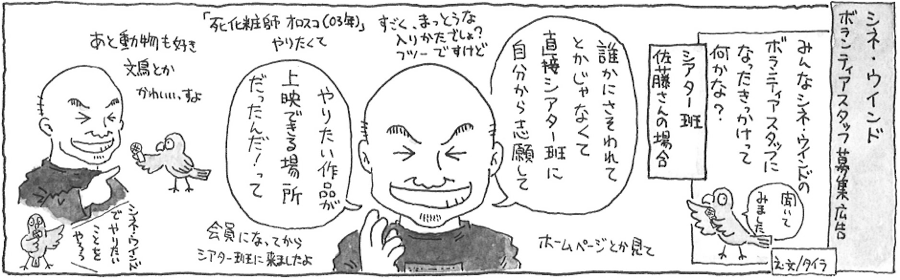 シネ・ウインド
ボランティアスタッフ募集広告
みんなシネ・ウインドの
ボランティアスタッフに
なったきっかけって
何かな？
聞いて
みました
え・文/タイラ
シアター班
佐藤さんの場合
誰かにさそわれて
とかじゃなくて
直接シアター班に
自分から志願して
ホームページとか見て
すごく、まっとうな
入りかたでしょ？
フツーですけど
「死化粧師オロスコ(03年)」
やりたくて
やりたい作品が
上映できる場所
だったんだ！って
会員になってから
シアター班に来ましたよ
あと動物も好き
文鳥とか
かわいいっすよ
シネ・ウインド
でやりたい
ことを
やろう